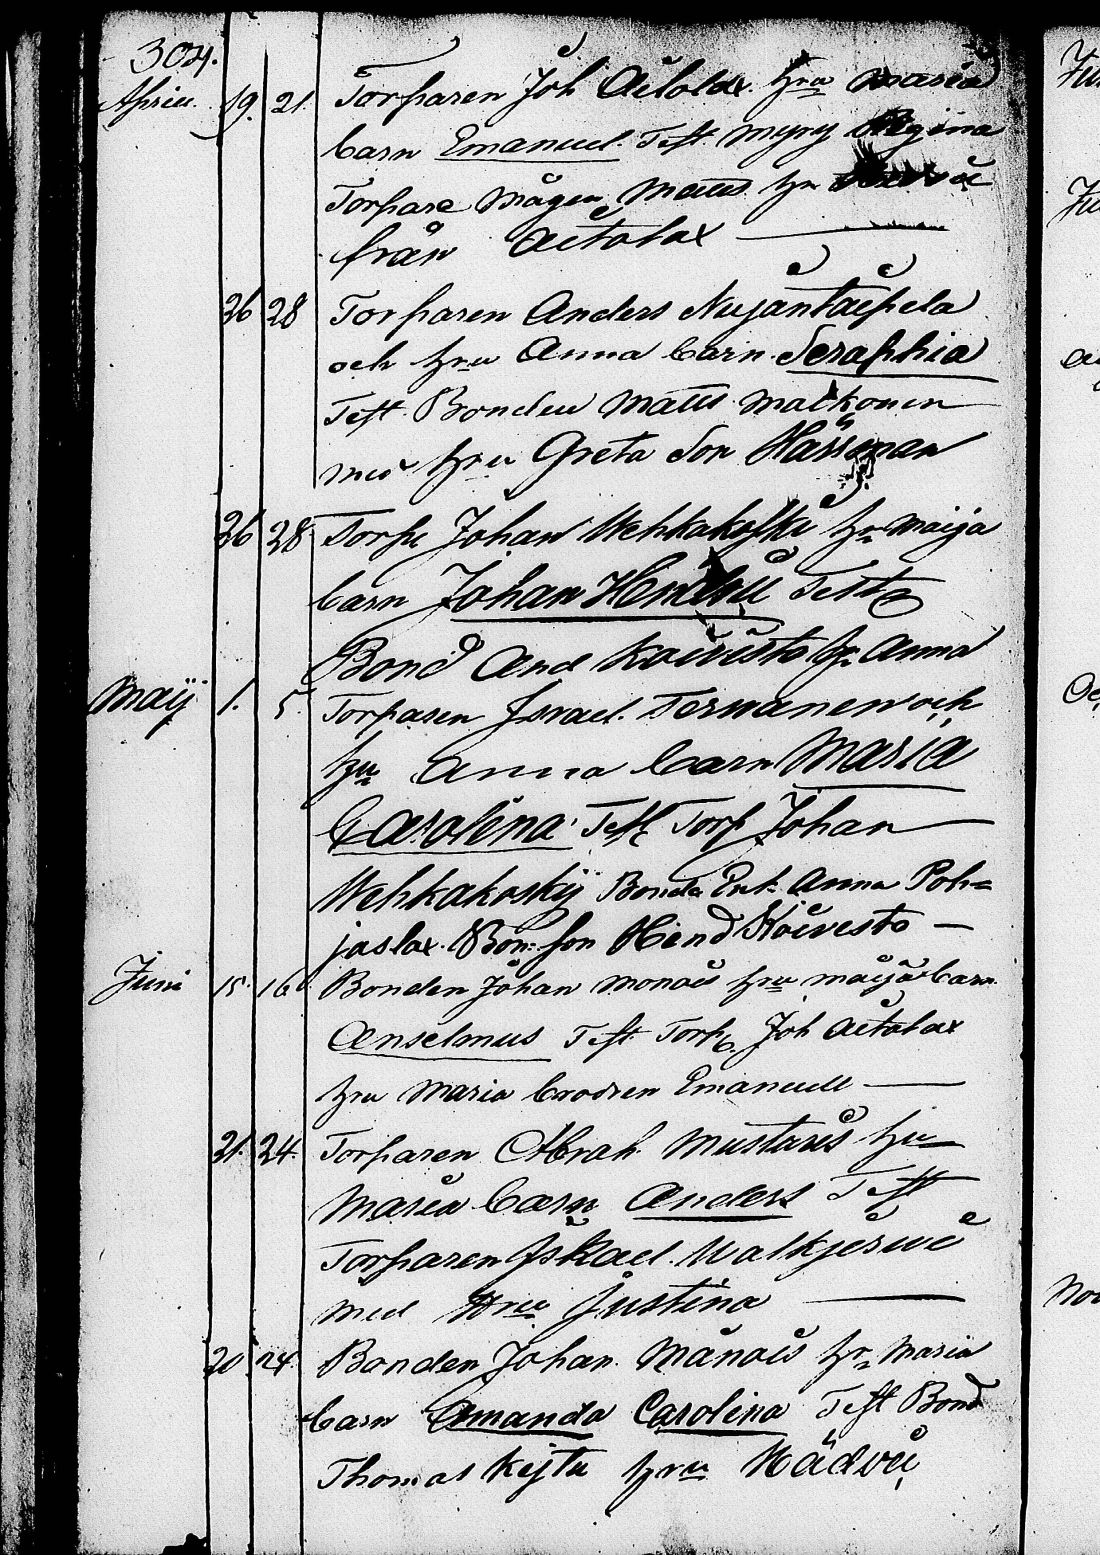 304.
Aprill 19. 21. Torparen Joh Aitolax hru Maria
barn Emanuel. Test. Myry Regina
Torpare Mågen Matts hr
från Aitolax
26 28 Torparen Anders Nujantaipela
och hru Anna barn Seraphia
Test Bonden Matts Matkonen
med hru Greta Son Hässman
26 28 Torpr Johan Wehkakoski hr Maija
barn Johan Hendric Test
Bond And Koivisto hr Anna
Maij 1. 5. Torparen Israel. Termanen och
hru Anna barn Maria
Carolina Test Torp Johan
Wehkakoskij Bonde Enk. Anna Poh=
jaslax. Bon. son Hend Koivesto
Juni 15. 16 Bonden Johan Monais hru Maija barn
Anselmus Test Torp. Joh Aitolax
hru Maria brodren Emanuell
21. 24. Torparen Abrah. Mustaus hru
Maria barn Anders Test
Torparen Iskael. Walkjerwi
med Hru Justina
20 24. Bonden Johan. Månais hr Maria
barn Amanda Carolina Test Bond
Thomas Kejtu hru Hädvi